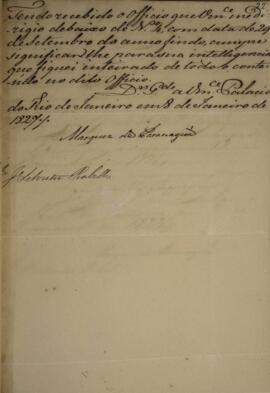 Tendo recebido o Officio que Vm.ce me di-
rigio debaixo de N.º com data de 29
de Setembro do anno findo, cumpre
significar-lhe para sua intelligencia
que fiquei inteirado de todo o conte-
udo no dito Officio.
D.s G.de a Vm.ce Palacio
do Rio de Janeiro em 8 de Janeiro de
1827.
Marquez de
S.r